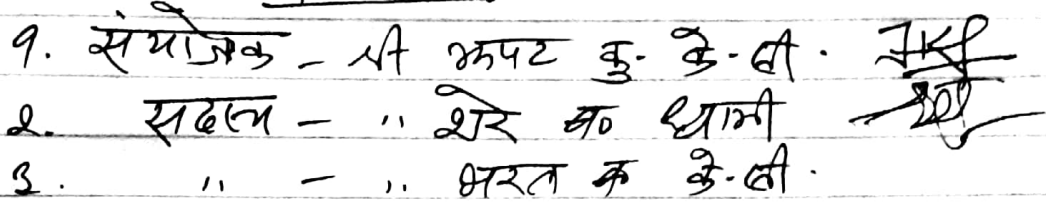 १. संयोजक - श्री झपट कु. के.सी.
२. सदस्य - " शेर ब० धामी
३. " - " भरत क के.सी.